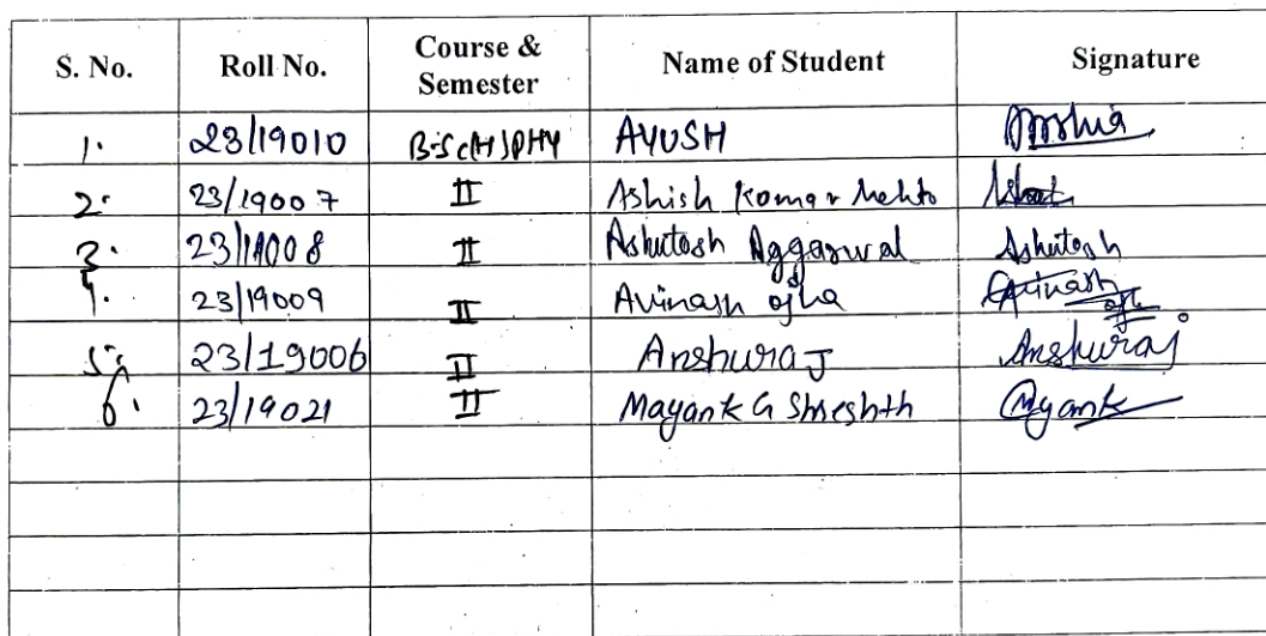 S. No. Roll No. Course & Semester Name of Student Signature
1. 23/19010 B.Sc(H)PHY AYUSH
2. 23/19007 II Ashish Komar Mehto
3. 23/19008 II Ashutosh Aggarwal Ashutosh
4. 23/19009 II Avinash ojha Avinash
5. 23/19006 II Anshuraj Anshuraj
6. 23/19021 II Mayank G Shreshth Mayank